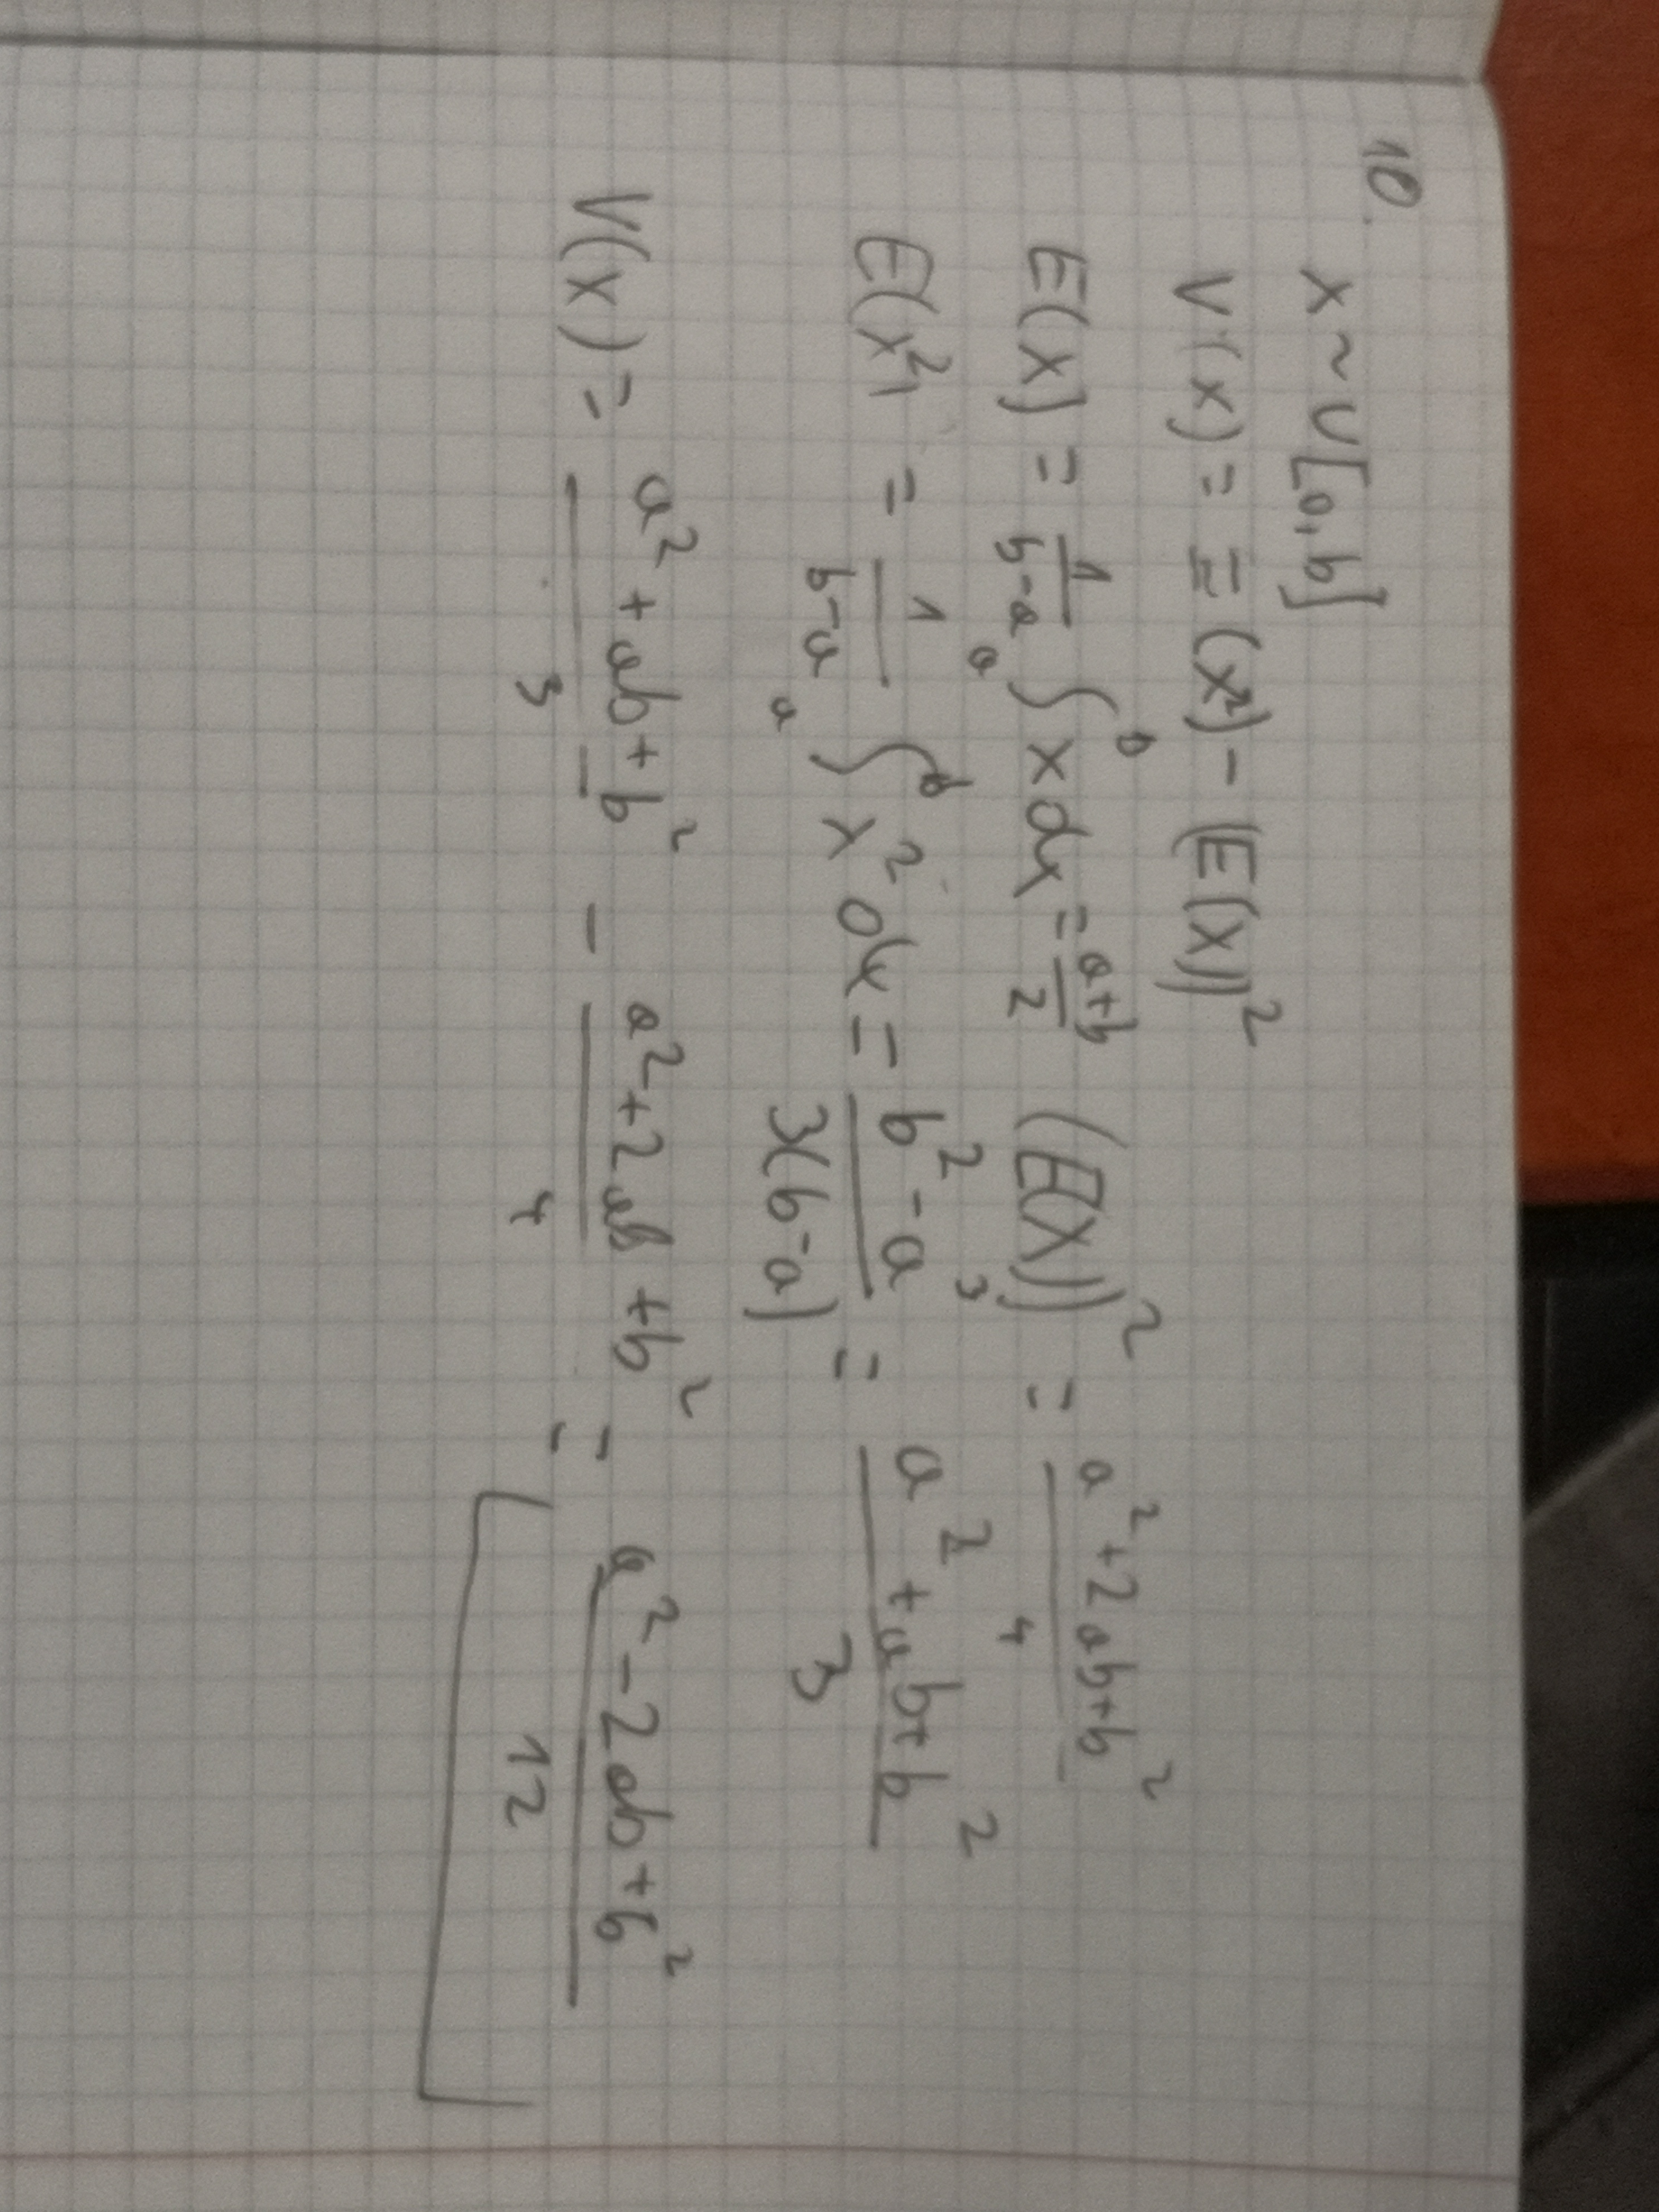 10.
X ~ U[a,b]
V(X) = E(X²) - (E(X))²
E(X) = 1/(b-a) ₐ∫ᵇ x dx = (a+b)/2 (E(X))² = (a²+2ab+b²)/4
E(X²) = 1/(b-a) ₐ∫ᵇ x² dx = (b²-a³)/(3(b-a)) = (a²+ab+b²)/3
V(X) = (a²+ab+b²)/3 - (a²+2ab+b²)/4 = (a²-2ab+b²)/12